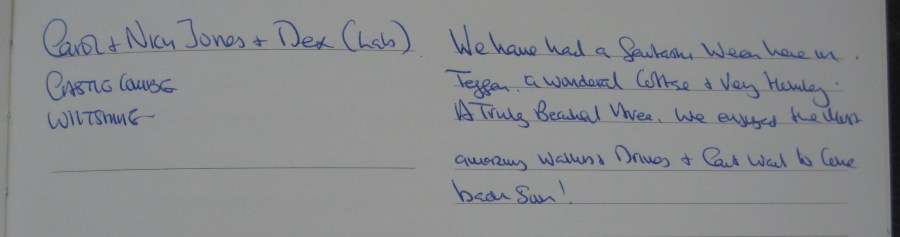 Carol & Nick Jones & Dex (Lab)
CASTLE COMBE
WILTSHIRE
We have had a fantastic Week here in
a wonderful Cottage & Very Homley.
A Truly Beautiful Area. We enjoyed the Most
amazing Walks & Drives & Cant Wait to Come
back Soon!